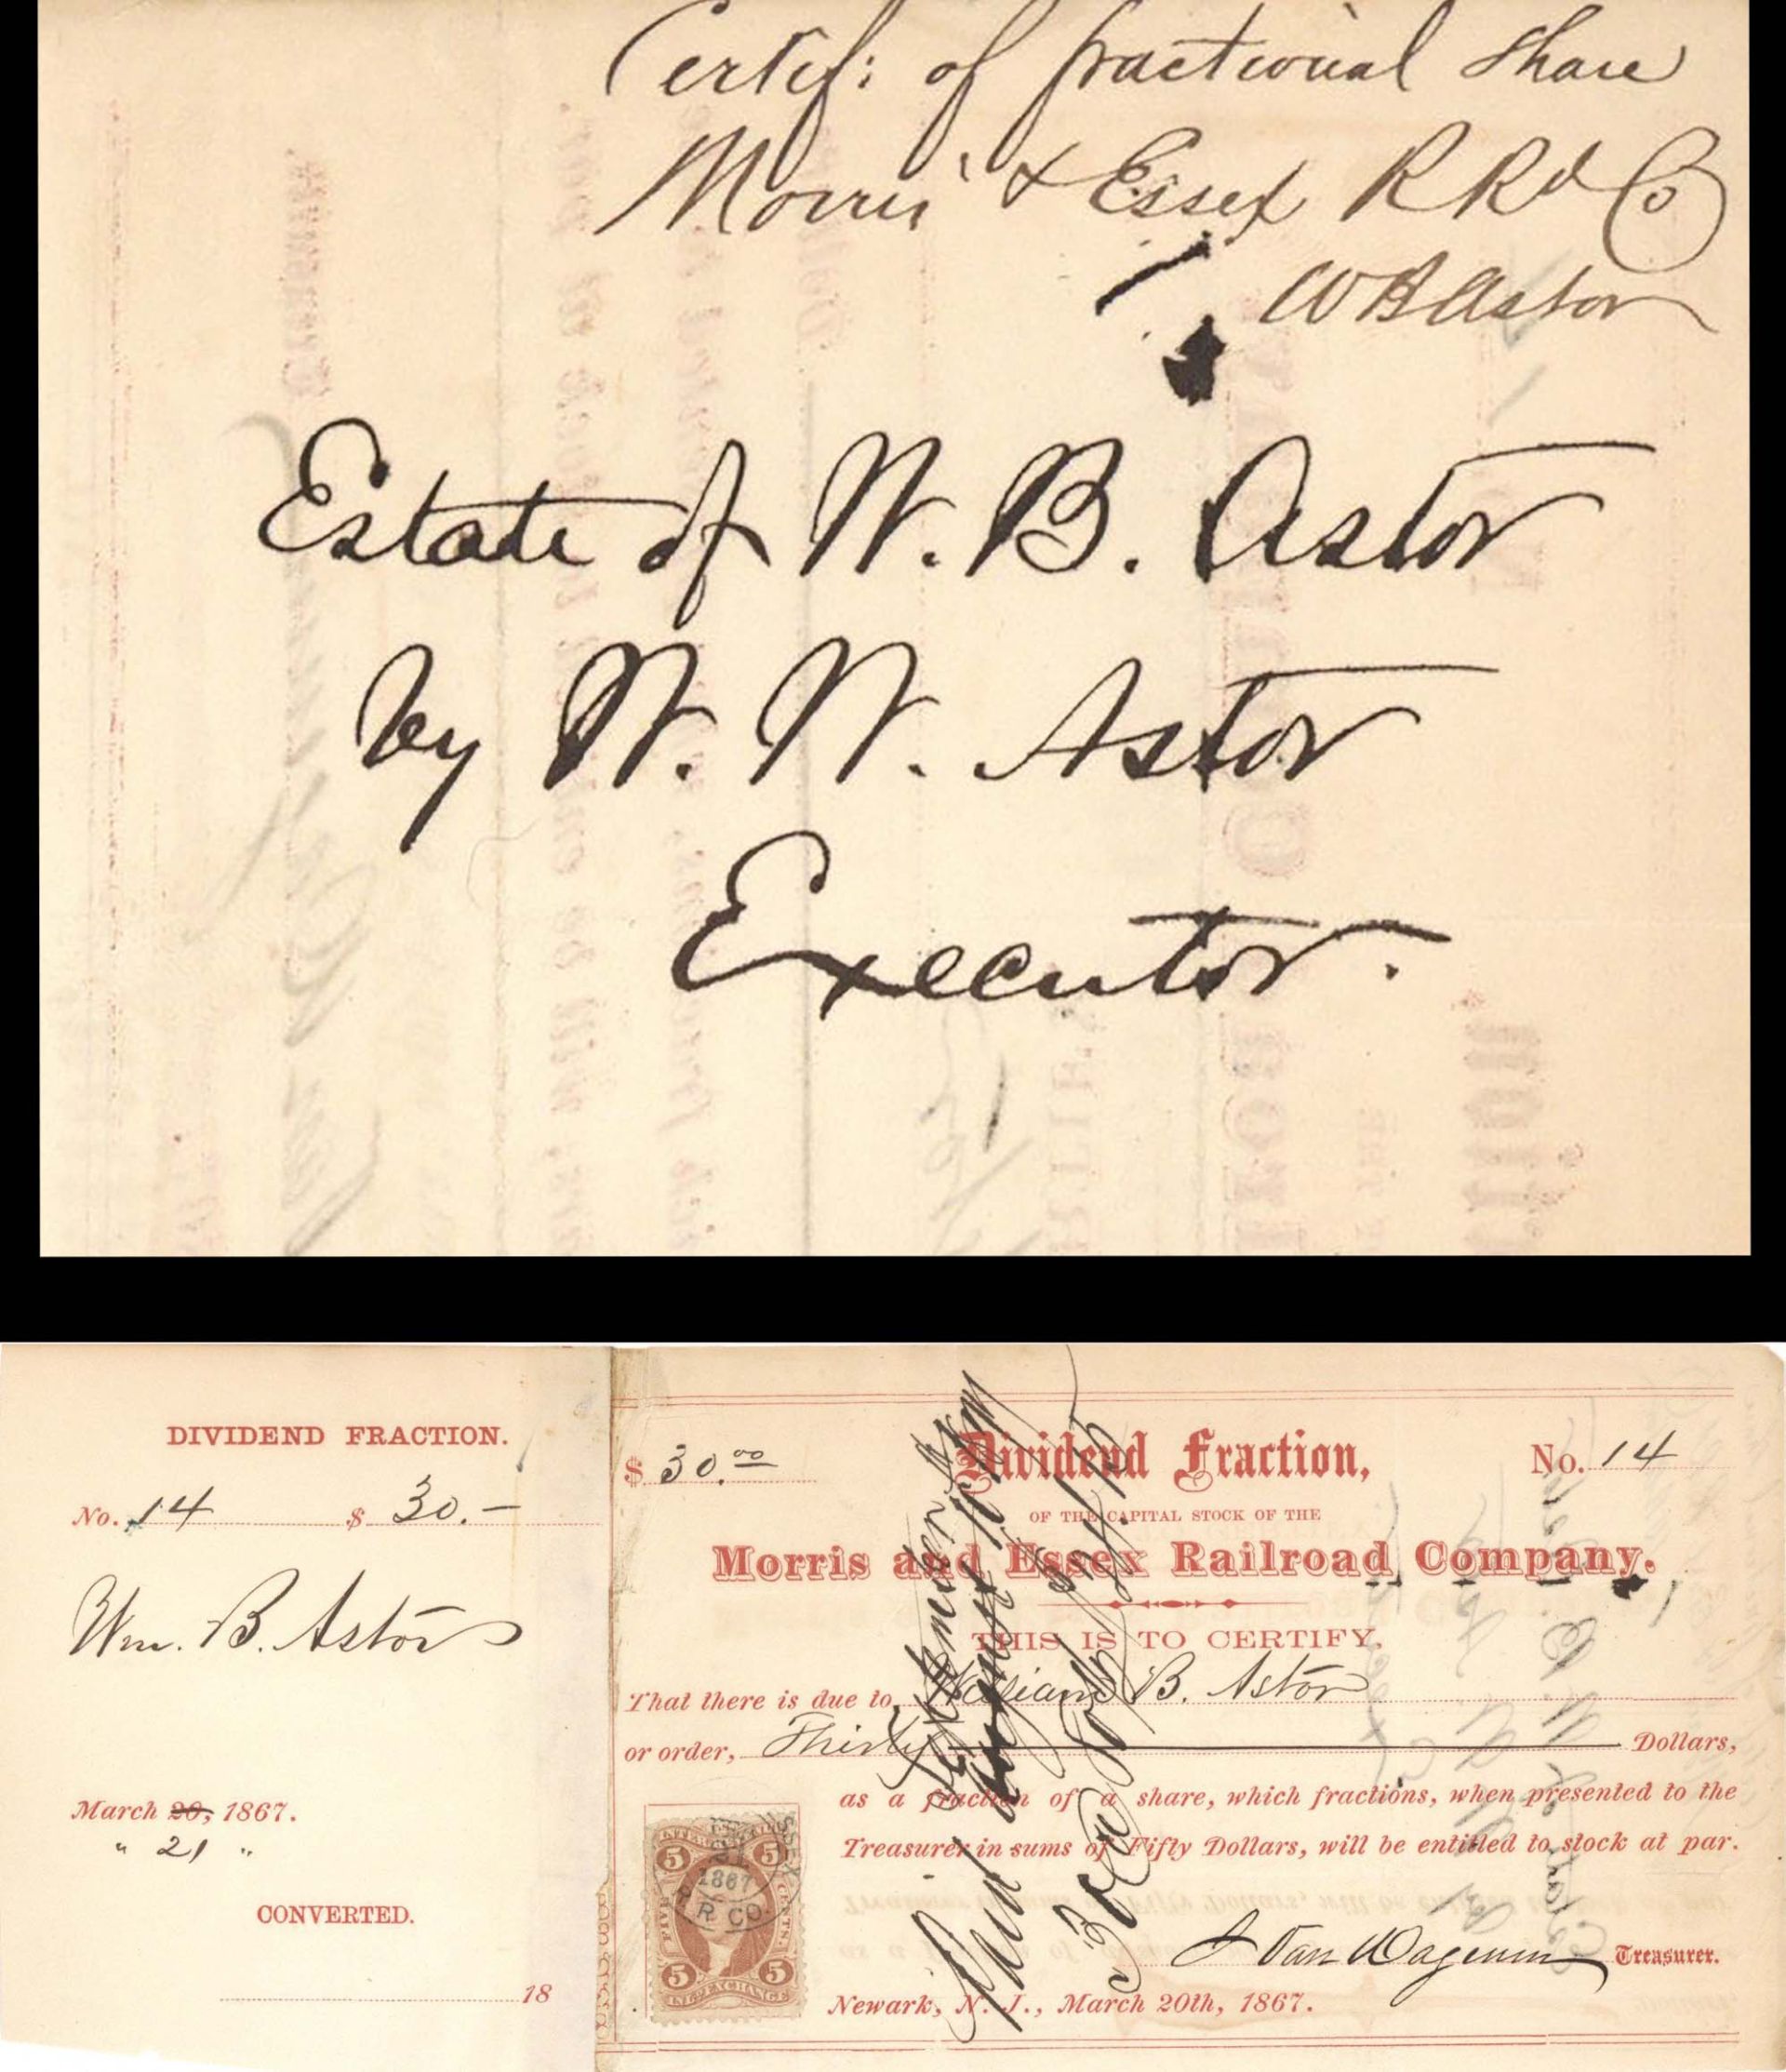 Certif: of fractional Share
Morris & Essex R Rd Co
W B Astor
Estate of W. B. Astor
by W. W. Astor
Executor.
DIVIDEND FRACTION.
No. 14 $ 30.-
Wm. B. Astor
March 20, 1867.
" 21 "
CONVERTED.
18
$ 30.00
Dividend Fraction,
No. 14
OF THE CAPITAL STOCK OF THE
Morris and Essex Railroad Company.
THIS IS TO CERTIFY,
That there is due to William B. Astor
or order, Thirty Dollars,
as a fraction of a share, which fractions, when presented to the
Treasurer in sums of Fifty Dollars, will be entitled to stock at par.
J Van Wagenen Treasurer.
Newark, N. J., March 20th, 1867.
5 5
1867
R R CO.
5 5
INTER. EXCHANGE
Paid August